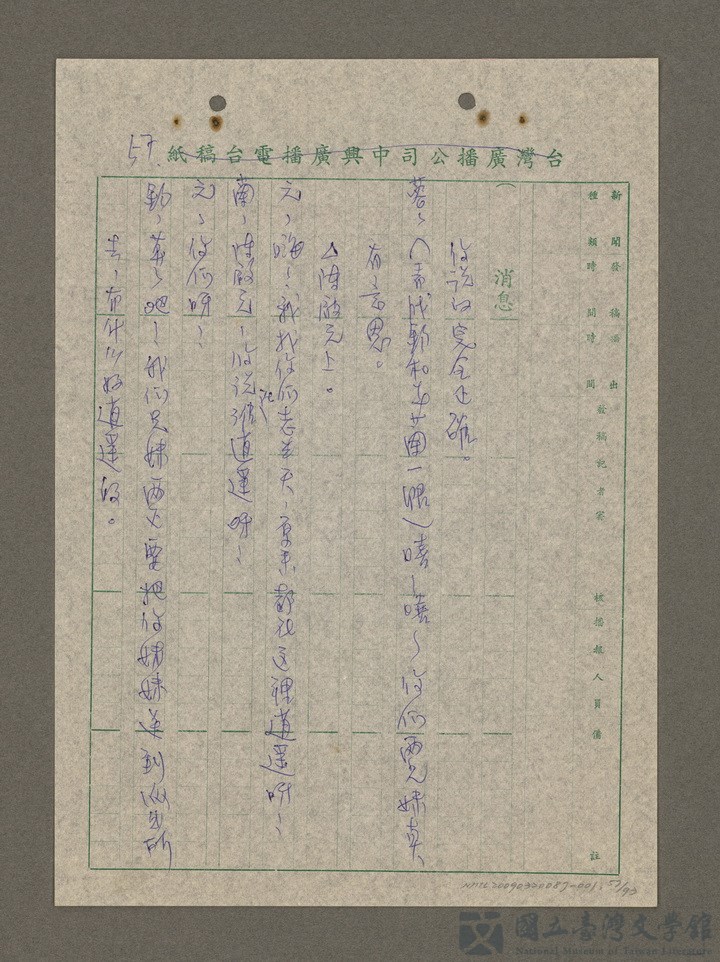 台灣廣播公司中興廣播電台稿紙
57.
新聞發稿播出
種類時間時間發稿記者室核播報人員備註
消息
你說的完全正確。
(看成勳和一眼)嘻~嘻~你们兩兄妹真
有意思。
△陳啟元上。
元、嗨!我找你们老半天,原來都在这裡逍遥呀!
陳啟元,你说誰逍遥呀!
元、你们呀!
勳、算了吧!我们兄妹两人要把你姊妹送到派出所
去,有什么好逍遥的。
NMTL20090320087-001 57/93
國立臺灣文學館
National Museum of Taiwan Literature